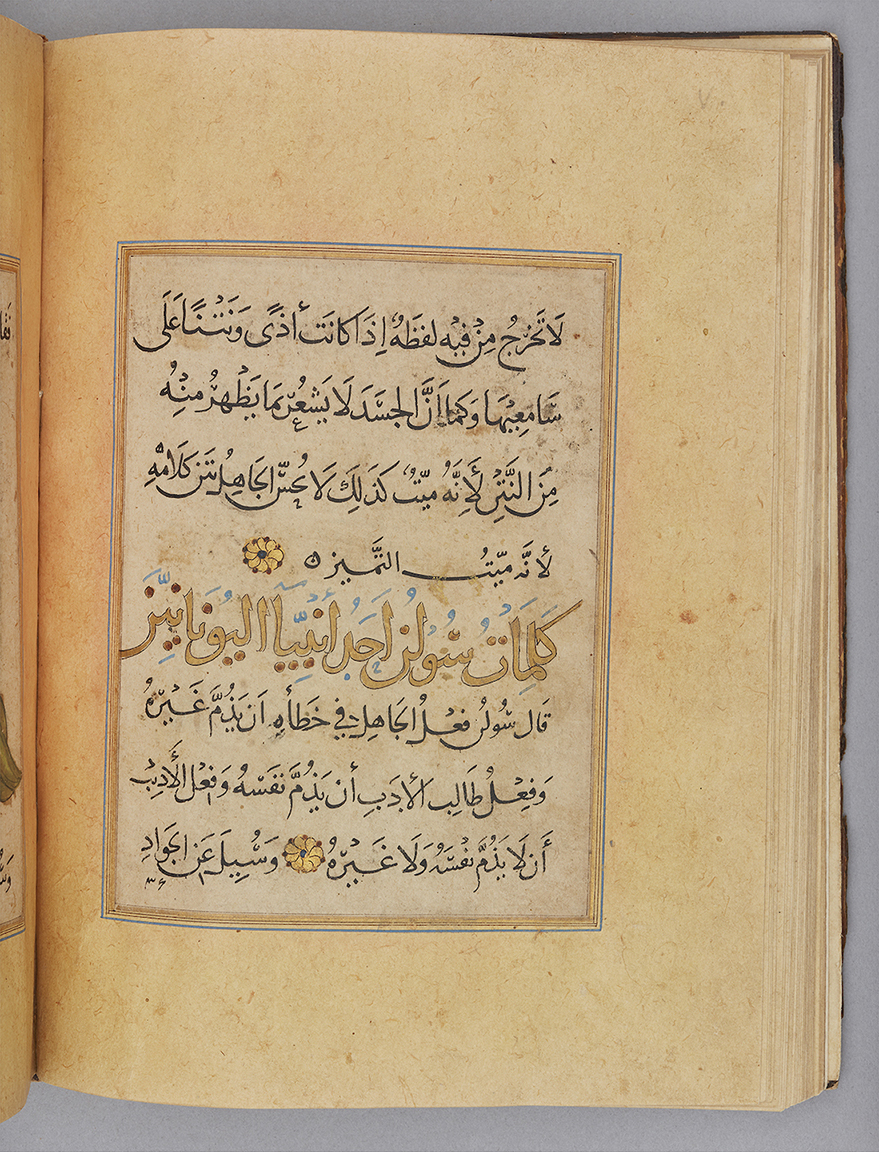 لَا تَخْرُجُ مِنْ فِيْهِ لفظَةٌ إِذَا كانَت أَذًى وَنَتْنًا عَلَى
سَامِعِيْهَا وَكَمَا اَنَّ الجَسَدَ لَا يَشعُرُ بِمَا يَظْهَرُ مِنْهُ
مِنَ النَّتْنِ لِأَنَّهُ مَيّتٌ كَذَلِكَ لَا يُحِسُّ الجَاهِلُ بنَتنِ كَلَامِهِ
لأنَّهُ مَيّتُ التَّمْييز ه
كَلِمَاتُ سُولُن اَحَدُ أنبِيَآءِ اليُونَانيّينَ
قَال سُولُن فِعْلُ الجَاهِلِ في خَطَأِهِ اَن يَذُمَّ غَيْرَهُ
وَفِعْلُ طَالِبِ الأدَبِ أن يَذُمَّ نَفسَهُ وَفِعْلُ الأَدِيْبِ
أَن لَا يَذُمَّ نفْسَهُ وَلَا غَيْرَهُ وَسُيِلَ عَنِ الجَوادِ